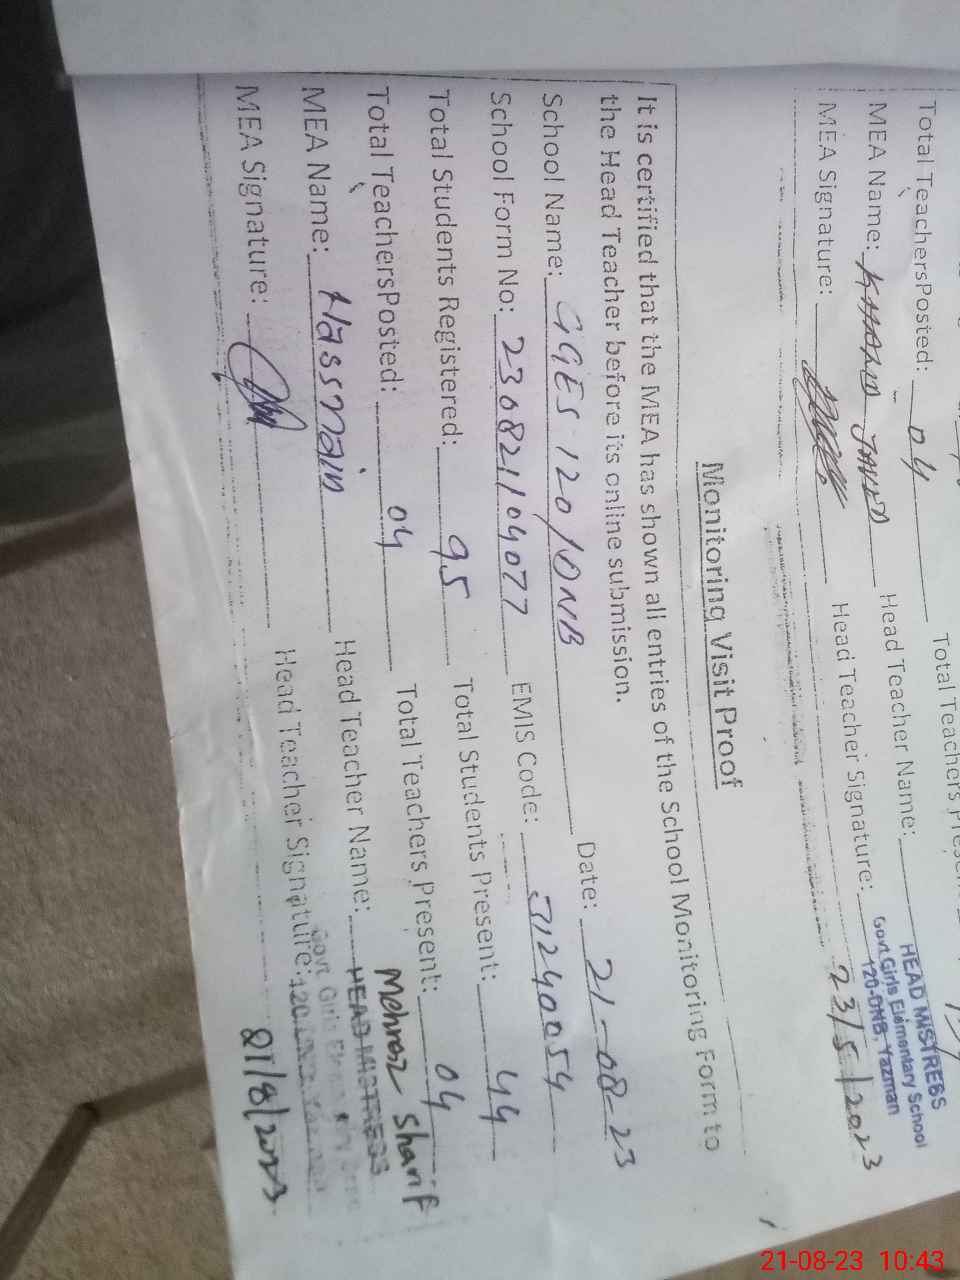 Total TeachersPosted: 04 Total Teachers
MEA Name: KHALID JAVED Head Teacher Name: HEAD MISTRESS
Govt.Girls Elementary School
120-DNB, Yazman
MEA Signature: Head Teacher Signature: 23/5/2023
Monitoring Visit Proof
It is certified that the MEA has shown all entries of the School Monitoring Form to
the Head Teacher before its online submission.
School Name: GGES 120/DNB Date: 21-08-23
School Form No: 230821104077 EMIS Code: 31240054
Total Students Registered: 95 Total Students Present: 44
Total TeachersPosted: 04 Total Teachers Present: 04
MEA Name: Hassnain Head Teacher Name: Mehnaz Sharif
HEAD MISTRESS
MEA Signature: Head Teacher Signature: 21/8/2023
Govt. Girls
21-08-23 10:43